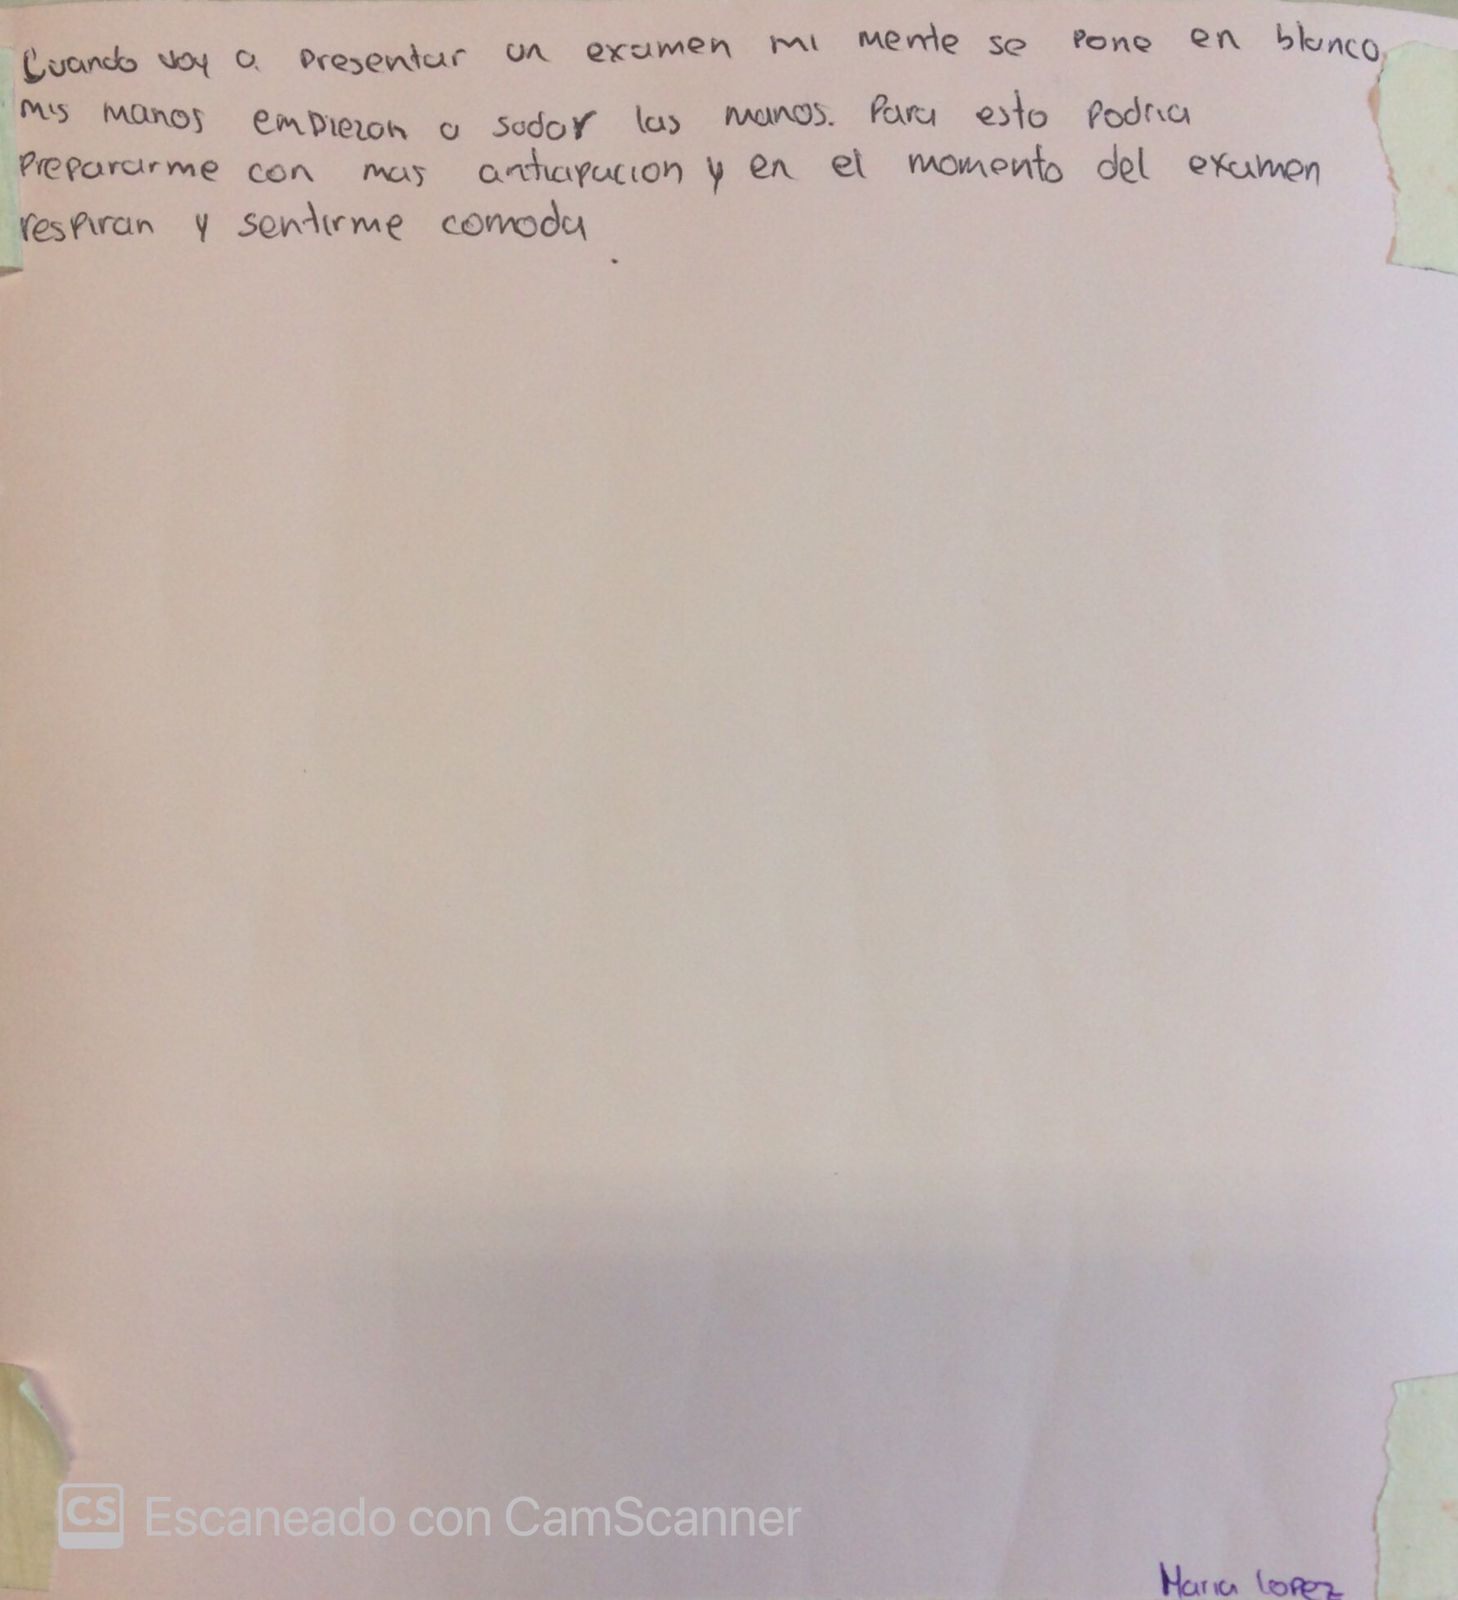 Cuando voy a presentar un examen mi mente se pone en blanco,
mis manos empiezan a sodar las manos. Para esto podria
prepararme con mas anticipacion y en el momento del examen
respiran y sentirme comoda
.
CS Escaneado con CamScanner
Maria Lopez